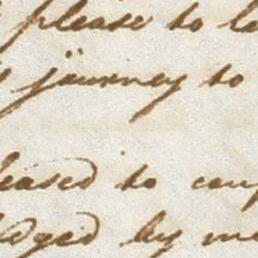 please to
journey to
eased to
edged by me